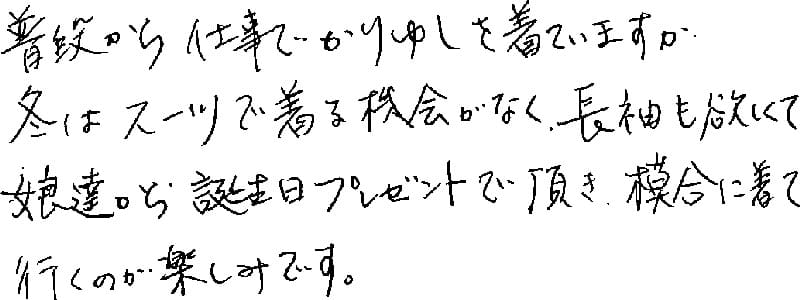 普段から仕事でかりゆしを着ていますが
冬はスーツで着る機会がなく、長袖も欲くて
娘達から誕生日プレゼントで頂き、模合に着て
行くのが楽しみです。